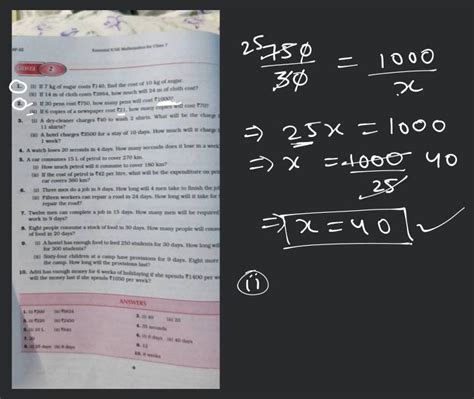 Essential ICSE Mathematics for Class 7
2
1. (i) If 7 kg of sugar costs ₹140, find the cost of 10 kg of sugar.
(ii) If 14 m of cloth costs ₹2664, how much will 24 m of cloth cost?
2. (i) If 30 pens cost ₹750, how many pens will cost ₹1000?
(ii) If 6 copies of a newspaper cost ₹21, how many copies will cost ₹70?
3. (i) A dry-cleaner charges ₹40 to wash 2 shirts. What will be the charge
11 shirts?
(ii) A hotel charges ₹3500 for a stay of 10 days. How much will it charge
1 week?
4. A watch loses 20 seconds in 4 days. How many seconds does it lose in a week
5. A car consumes 15 L of petrol to cover 270 km.
(i) How much petrol will it consume to cover 180 km?
(ii) If the cost of petrol is ₹42 per litre, what will be the expenditure on pe
car covers 360 km?
6. (i) Three men do a job in 8 days. How long will 4 men take to finish the jo
(ii) Fifteen workers can repair a road in 24 days. How long will it take for
repair the road?
7. Twelve men can complete a job in 15 days. How many men will be required
work in 9 days?
8. Eight people consume a stock of food in 30 days. How many people will consu
of food in 20 days?
9. (i) A hostel has enough food to feed 250 students for 30 days. How long wil
for 300 students?
(ii) Sixty-four children at a camp have provisions for 9 days. Eight more
the camp. How long will the provisions last?
10. Aditi has enough money for 6 weeks of holidaying if she spends ₹1400 per w
will the money last if she spends ₹1050 per week?
ANSWERS
1. (i) ₹200
2. (i) 40 (ii) 20
4. 35 seconds
5. (i) 10 L
6. (i) 6 days
7. 20
8. 12
10. 8 weeks
25 750/30 = 1000/x
⇒ 25x = 1000
⇒ x = 1000/25 40
⇒ x = 40
(ii)